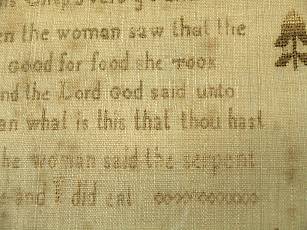 en the woman saw that the
good for food she took
nd the Lord God said unto
an what is this that thou hast
he woman said the serpent
e and I did eat